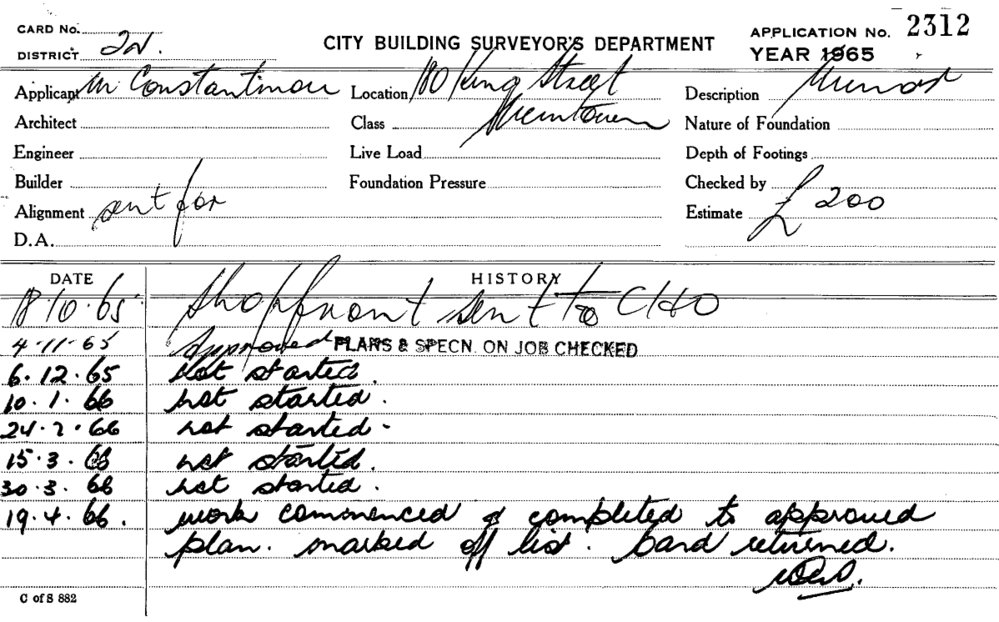 CARD No. APPLICATION No. 2312
DISTRICT 2N. CITY BUILDING SURVEYOR'S DEPARTMENT YEAR 1965
Applicant M Constantinou Location 180 King Street Description Minor
Architect Class Newtown Nature of Foundation
Engineer Live Load Depth of Footings
Builder Foundation Pressure Checked by
Alignment sent for Estimate £ 200
D.A.
DATE HISTORY
18.10.65 Shopfront sent to CHO
4.11.65 Approved PLANS & SPECN. ON JOB CHECKED
6.12.65 Not started.
10.1.66 not started.
24.2.66 not started.
15.3.66 not started.
30.3.66 not started.
19.4.66. work commenced & completed to approved
plan. marked off list. Card returned.
C of S 882